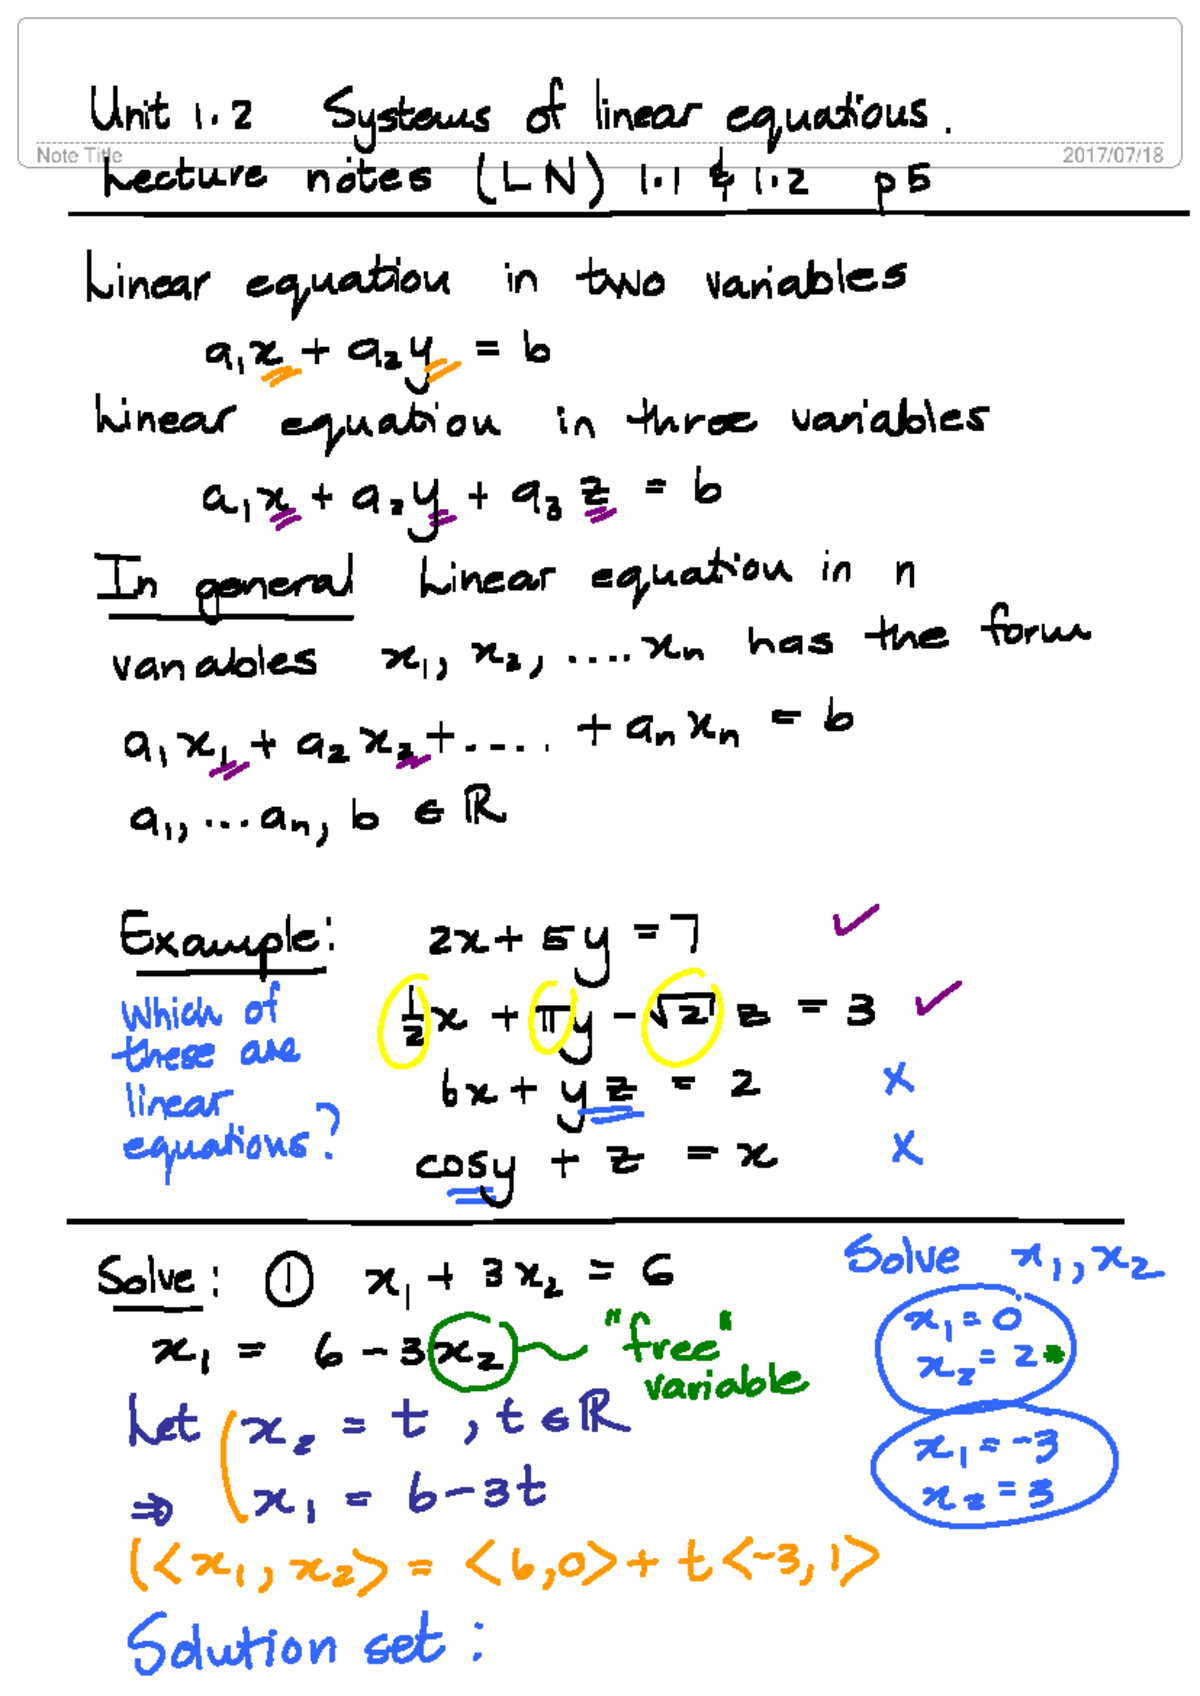 Unit 1.2 Systems of linear equations.
Note Title 2017/07/18
Lecture notes (LN) 1.1 & 1.2 p5
Linear equation in two variables
a₁x + a₂y = b
Linear equation in three variables
a₁x + a₂y + a₃z = b
In general Linear equation in n
variables x₁, x₂, .... xₙ has the form
a₁x₁ + a₂x₂ + .... + aₙxₙ = b
a₁, ... aₙ, b ∈ ℝ
Example: 2x + 5y = 7 ✓
Which of these are linear equations?
½x + πy - √2 z = 3 ✓
6x + yz = 2 x
cosy + z = x x
Solve: ① x₁ + 3x₂ = 6
Solve x₁, x₂
x₁ = 6 - 3x₂ "free" variable
x₁ = 0
x₂ = 2
Let x₂ = t, t ∈ ℝ
x₁ = -3
x₂ = 3
⇒ x₁ = 6 - 3t
(<x₁, x₂> = <6,0> + t<-3,1>
Solution set: